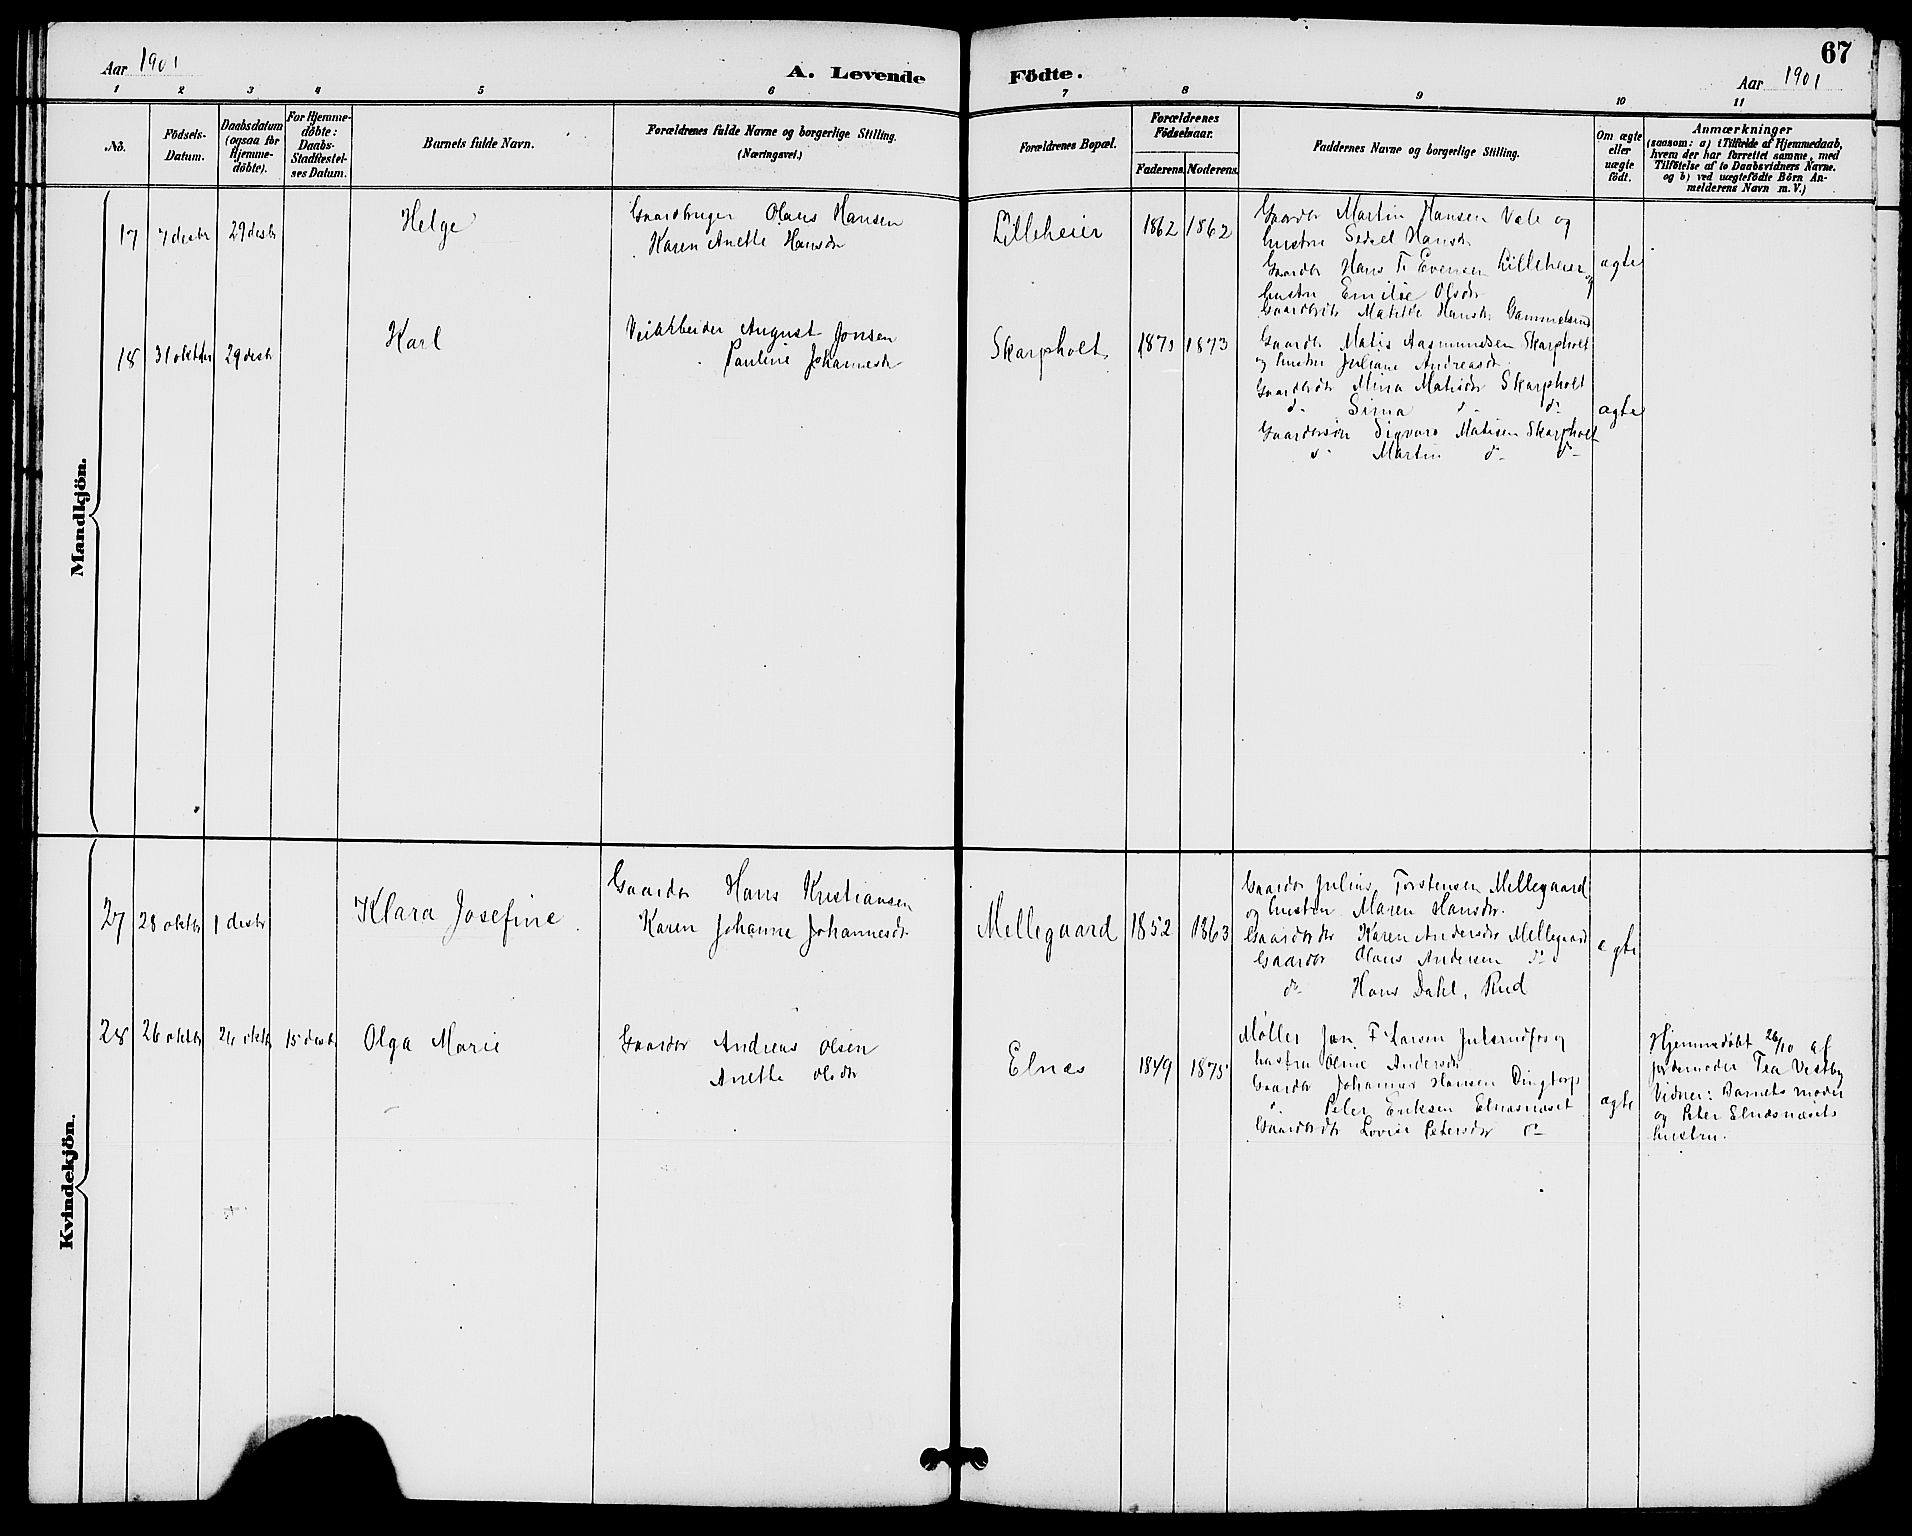 Aar 1901
A. Levende Födte.
67
Aar 1901
1 2 3 4 5 6 7 8 9 10 11
No.
Födsels-Datum.
Daabsdatum (ogsaa for Hjemme-döbte).
For Hjemme-döbte: Daabs-Stadfæstel-ses Datum.
Barnets fulde Navn.
Forældrenes fulde Navne og borgerlige Stilling.
(Næringsvei.)
Forældrenes Bopæl.
Forældrenes Födselsaar.
Faderens. Moderens.
Faddernes Navne og borgerlige Stilling.
Om ægte eller uægte födt.
Anmærkninger
(saasom: a) i Tilfælde af Hjemmedaab,
hvem der har forrettet samme, med
Tilföielse af to Daabsvidners Navne.
og b) ved uægtefödte Börn An-
melderens Navn m. V.)
Mandkjön.
17 7 desbr 29 desbr Helge
Gaardbruger Olaus Hansen
Karen Anette Hansdr
Lilleheier 1862 1862
Gaardbr Martin Hansen Vale og
hustru Sedsel Hansdr
Gaardbr Hans T. Evensen Lilleheier og
hustru Emilie Olsdr
Gaardbrdtr Matilde Hansdr Gammelsund
ægte
18 31 oktbr 29 desbr Karl
Veiarbeider August Jonsen
Pauline Johannesdr
Skarpholt 1873
Gaardbr Matis Aasmundsen Skarpholt
og hustru Juliane Andreasdr
Gaardbrdtr Mina Matisdr Skarpholt
d- Sina d- d-
Gaardbrsön Sigvard Matisen Skarpholt
d- Martin d- d-
ægte
Kvindekjön.
27 28 oktbr 1 desbr Klara Josefine
Gaardbr Hans Kristiansen
Karen Johanne Johannesdr
Mellegaard 1852 1863
Gaardbr Julius Torstensen Mellegaard
og hustru Maren Hansdr.
Gaardbrdtr Karen Andersdr Mellegaard
Gaardbr Olaus Andersen d-
d- Hans Dahl, Rud
ægte
28 26 oktbr 26 oktbr 15 desbr Olga Marie
Gaardbr Andreas Olsen
Anette Olsdr
Elnæs 1849 1875
Møller Jan F. Larsen og
hustru Oline Andersdr
Gaardbr Johannes Hansen Dingtorp
d. Peter Eriksen Elnæsnæset
Gaardbrdtr Lovise Petersdr d-
ægte
Hjemmedöbt 26/10 af
jordemoder Tea Vestby
Vidner: Barnets moder
og Peter Elnæsnæsets
hustru.